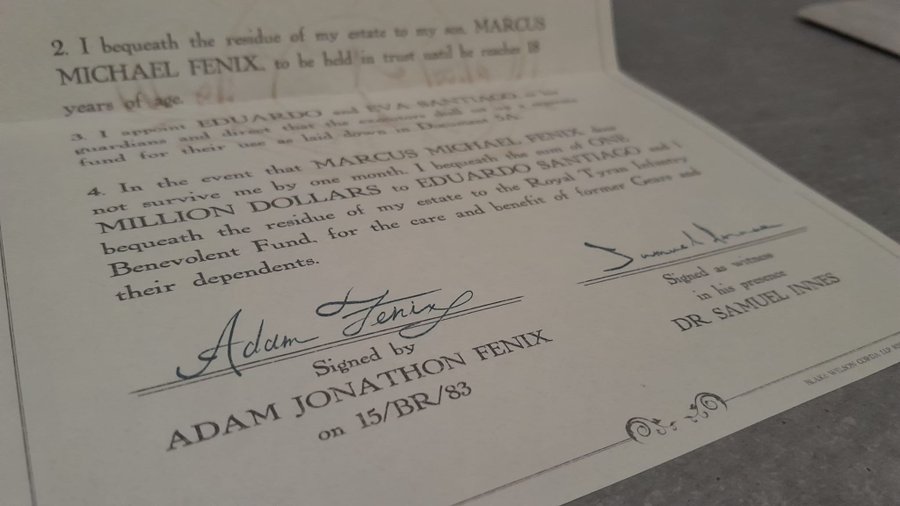 2. I bequeath the residue of my estate to my son, MARCUS
MICHAEL FENIX, to be held in trust until he reaches 18
years of age.
3. I appoint EDUARDO and EVA SANTIAGO as his
guardians and direct that the executors shall set up a separate
fund for their use as laid down in Document 5A.
4. In the event that MARCUS MICHAEL FENIX does
not survive me by one month, I bequeath the sum of ONE
MILLION DOLLARS to EDUARDO SANTIAGO and I
bequeath the residue of my estate to the Royal Tyran Infantry
Benevolent Fund, for the care and benefit of former Gears and
their dependents.
Adam Fenix
Signed by
ADAM JONATHON FENIX
on 15/BR/83
Samuel Innes
Signed as witness
in his presence
DR SAMUEL INNES